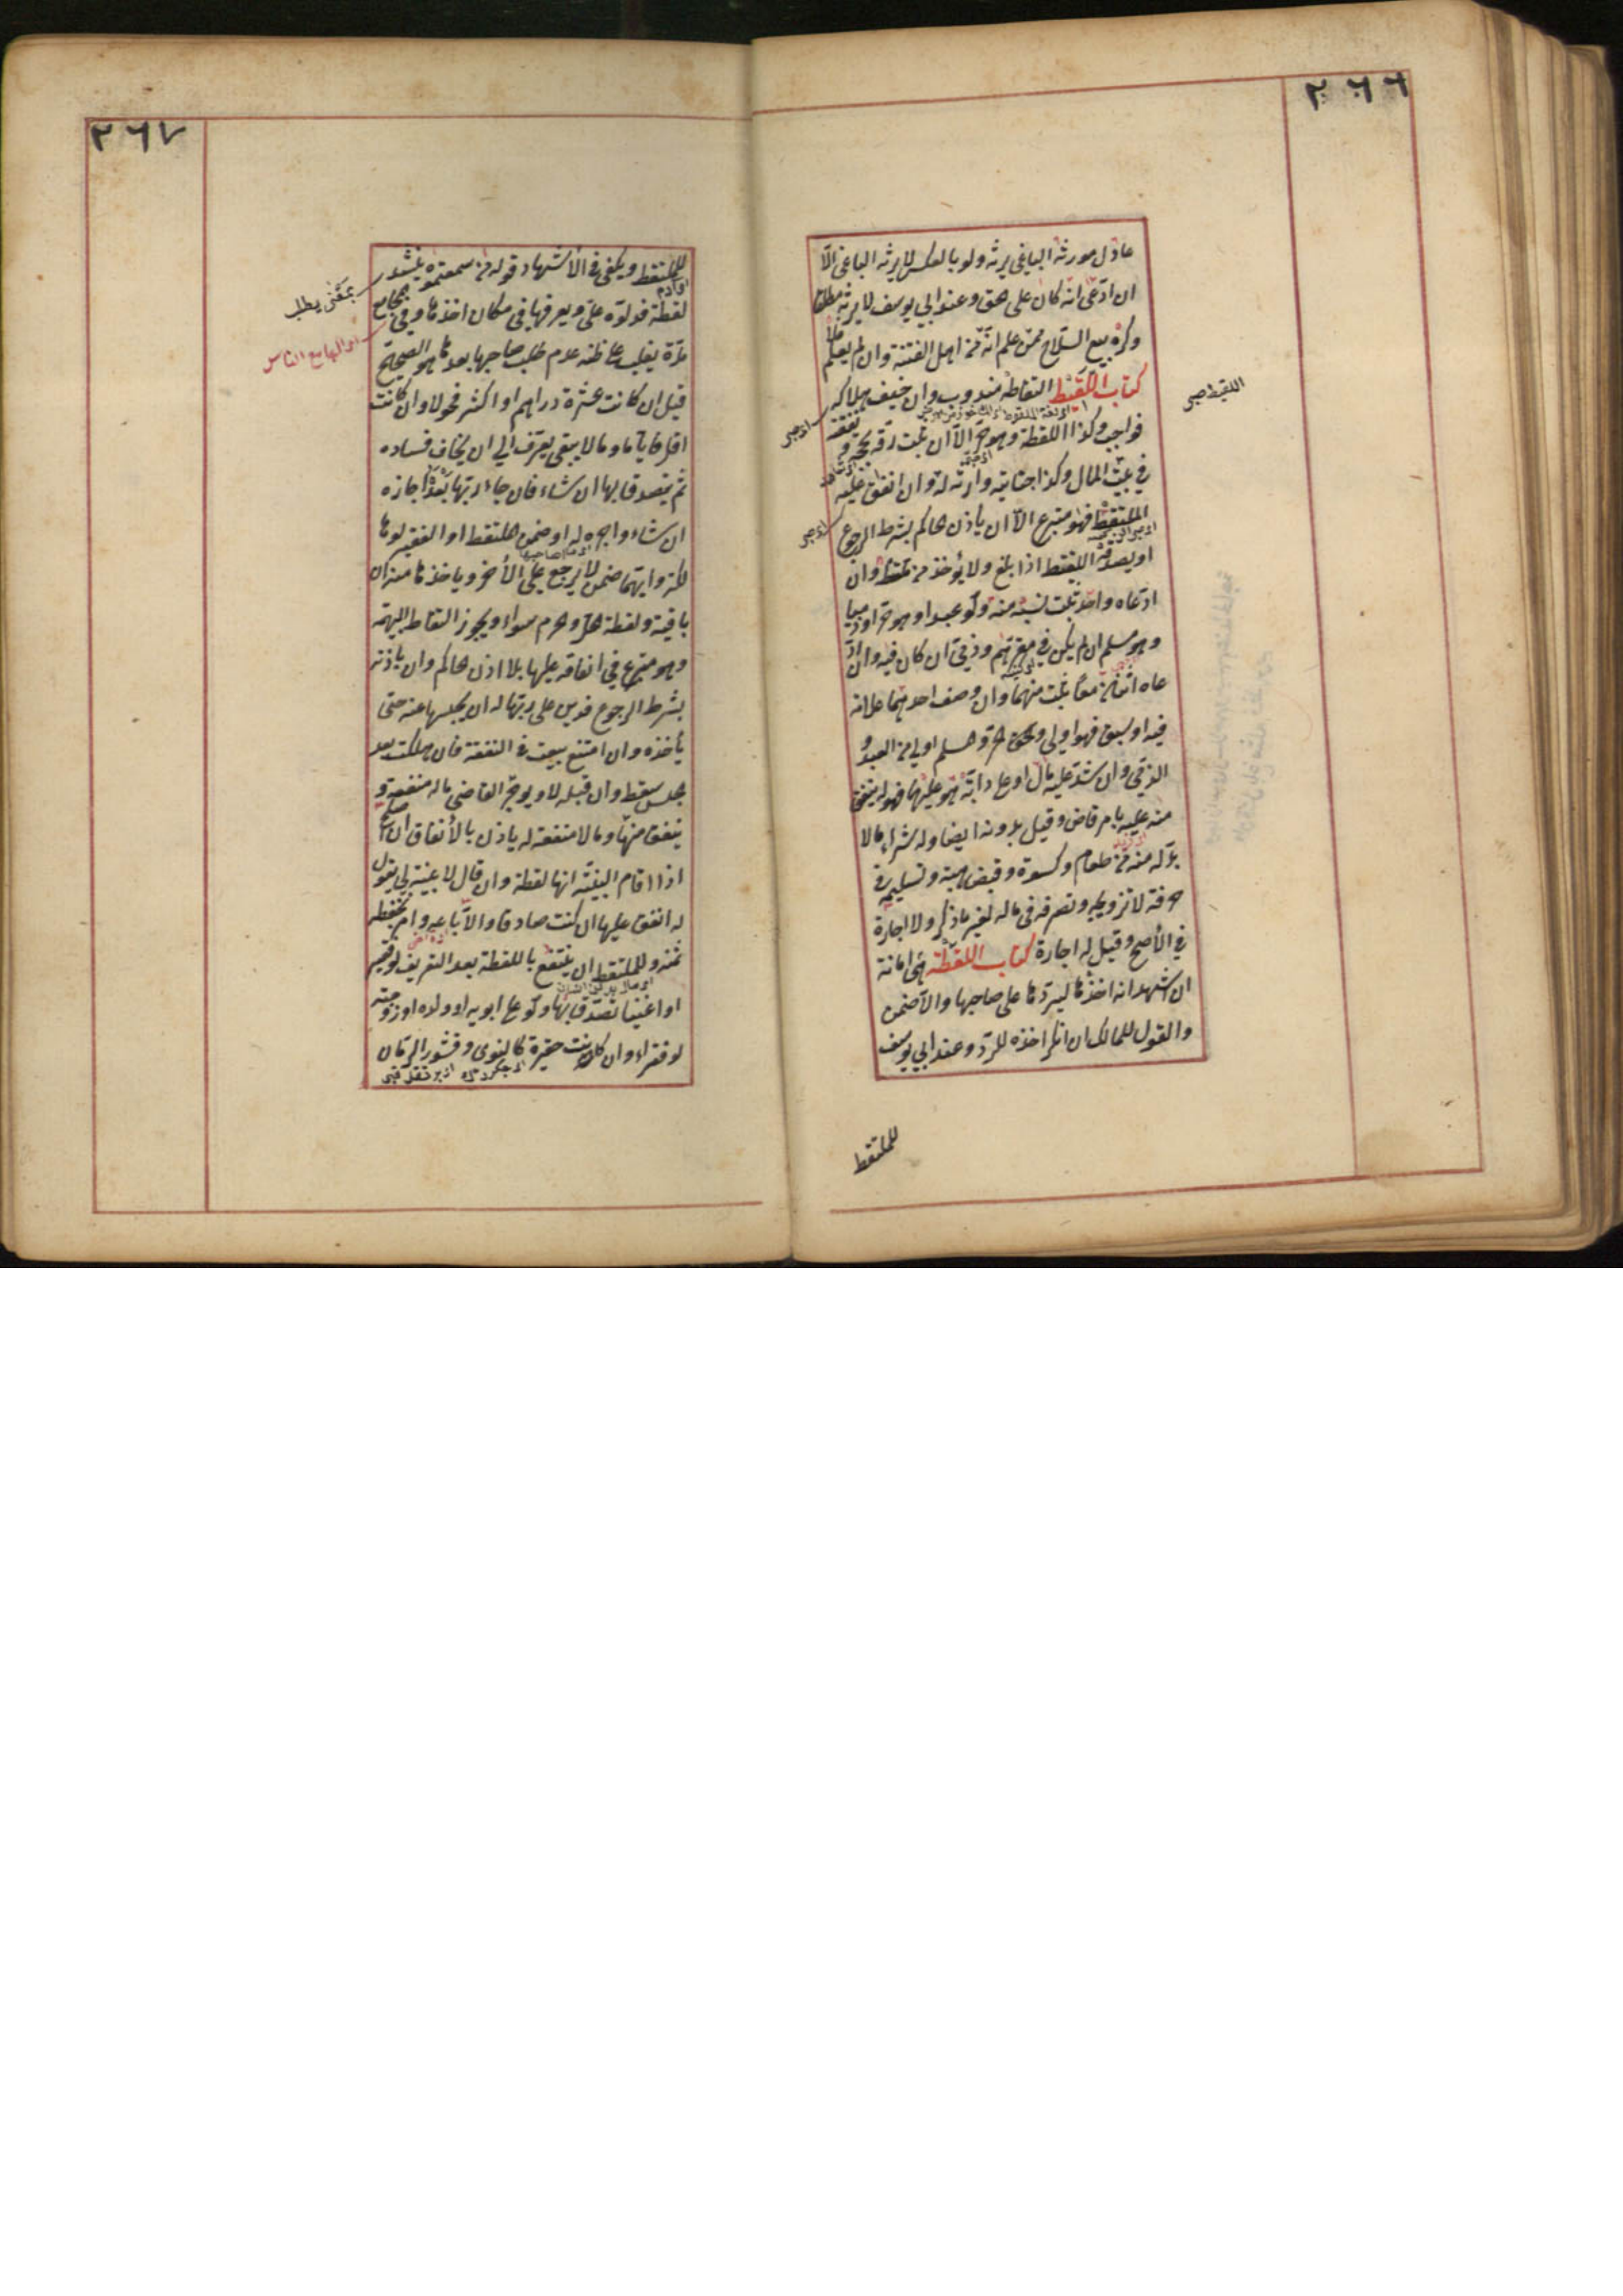 ٢٦٦
عادل مورثه الباغي يرثه ولو بالعكس لا يرثه الباغي الّا
ان ادّعى انه كان على حق وعند ابي يوسف لا يرثه مطلقا
وكره بيع السلاح ممّن علم انّه من اهل الفتنة وان لم يعلم فلا
كتاب اللقيط التقاطه مندوب وان خيف هلاكه
فواجب وكذا اللقطة وهو حرّ الّا ان ثبت رقه بحجة و نفقته
في بيت المال وكذا جنايته وارثه له وان انفق عليه
الملتقط فهو متبرع الّا ان يأذن حاكم بشرط الرجوع
او يصدقه اللقيط اذا بلغ ولا يؤخذ من ملتقطه وان
ادّعاه واحد ثبت نسبه منه ولو عبدا وهو حرّ او ذميا
وهو مسلم ان لم يكن في مقرهم وذمّي ان كان فيه وان ادّ
عاه اثنان معا ثبت منهما وان وصف احدهما علامة
فيه او سبق فهو اولى والحق حرّ ومسلم اولى من العبد و
الذمّي وان شدّ عليه مال او على دابة هو عليها فهو له ينفق
منه عليه بامر قاض وقيل بدونه ايضا وله شراء ما لا
بدّ له منه من طعام وكسوة وقبض هبته وتسليمه في
حرفة لا تزويجه وتصرفه في ماله لغير ما ذكر ولا اجارة
في الأصح وقيل له اجارة كتاب اللقطة هي امانة
ان اشهد انه اخذها ليردّها على صاحبها والّا ضمن
والقول للمالك ان انكر اخذه للردّ وعند ابي يوسف
اللقيط صبى
اى صبى
اى صبى
للملتقط
٢٦٧
للملتقط ويكفي في الأشهاد قوله من سمعتموه ينشد
لقطة فدلّوه عليّ ويعرفها في مكان اخذها وفي المجامع
مدّة يغلب على ظنه عدم طلب صاحبها بعدها هو الصحيح
قيل ان كانت عشرة دراهم او اكثر فحولا وان كانت
اقل فايّاما وما لا يبقى يعرّف الى ان يخاف فساده
ثم يتصدق بها ان شاء فان جاء ربّها بعده اجازه
ان شاء واجره له او ضمن الملتقط او الفقير لو ها
لكة وايّهما ضمن لا يرجع على الأخر وياخذها منه ان
باقية ولقطة الحلّ والحرم سواء ويجوز التقاط البهيمة
وهو متبرع في انفاقه عليها بلا اذن حاكم وان باذنه
بشرط الرجوع فدين على ربّها له ان يحبسها عنه حتى
يأخذه وان امتنع بيعت في النفقة فان هلكت بعد
الحبس سقط وان قبله لا ويوجر القاضي ما له منفعة و
ينفق منها وما لا منفعة له ياذن بالأنفاق ان اصلح
اذا اقام البيّنة انها لقطة وان قال لا بيّنة لي يقول
له انفق عليها ان كنت صادقا والّا باعه وامر بحفظ
ثمنه وللملتقط ان ينتفع باللقطة بعد التعريف لو فقير
او اغنيا تصدّق بها ولو على ابويه او ولده او زوجته
لو فقراء وان كانت حقيرة كالنوى وقشور الرمّان
بمعنى يطلب